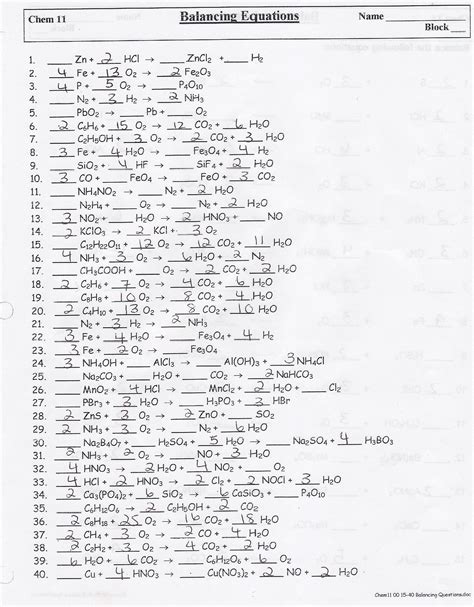 Chem 11 Balancing Equations Name ______
Block ___
1. ___ Zn + 2 HCl → ___ ZnCl2 + ___ H2
2. 4 Fe + 13 O2 → 2 Fe2O3
3. 4 P + 5 O2 → ___ P4O10
4. ___ N2 + 3 H2 → 2 NH3
5. ___ PbO2 → ___ Pb + ___ O2
6. 2 C6H6 + 15 O2 → 12 CO2 + 6 H2O
7. ___ C2H5OH + 3 O2 → 2 CO2 + 3 H2O
8. 3 Fe + 4 H2O → ___ Fe3O4 + 4 H2
9. ___ SiO2 + 4 HF → ___ SiF4 + 2 H2O
10. 3 CO + ___ FeO4 → ___ FeO + 3 CO2
11. ___ NH4NO2 → ___ N2 + 2 H2O
12. ___ N2H4 + ___ O2 → ___ N2 + 2 H2O
13. 3 NO2 + ___ H2O → 2 HNO3 + ___ NO
14. 2 KClO3 → 2 KCl + 3 O2
15. ___ C12H22O11 + 12 O2 → 12 CO2 + 11 H2O
16. 4 NH3 + 3 O2 → 6 H2O + 2 N2
17. ___ CH3COOH + ___ O2 → 2 CO2 + 2 H2O
18. 2 C2H6 + 7 O2 → 4 CO2 + 6 H2O
19. ___ C8H8 + 10 O2 → 8 CO2 + 4 H2O
20. 2 C4H10 + 13 O2 → 8 CO2 + 10 H2O
21. ___ N2 + 3 H2 → 2 NH3
22. 3 Fe + 4 H2O → ___ Fe3O4 + 4 H2
23. 3 Fe + 2 O2 → ___ Fe3O4
24. 3 NH4OH + ___ AlCl3 → ___ Al(OH)3 + 3 NH4Cl
25. ___ Na2CO3 + ___ H2O + ___ CO2 → 2 NaHCO3
26. ___ MnO2 + 4 HCl → ___ MnCl2 + 2 H2O + ___ Cl2
27. ___ PBr3 + 3 H2O → ___ H3PO3 + 3 HBr
28. 2 ZnS + 3 O2 → 2 ZnO + ___ SO2
30. ___ Na2B4O7 + ___ H2SO4 + 5 H2O → ___ Na2SO4 + 4 H3BO3
31. ___ NH3 + 2 O2 → ___ HNO3 + ___ H2O
32. 4 HNO3 → 2 H2O + 4 NO2 + ___ O2
33. HCl + HNO3 → Cl2 + NOCl + H2O
34. 2 Ca3(PO4)2 + 6 SiO2 → 6 CaSiO3 + ___ P4O10
35. ___ C6H12O6 → 2 C2H5OH + 2 CO2
36. 2 C8H18 + 25 O2 → 16 CO2 + 18 H2O
37. 2 CH4 + 3 O2 → 2 CO + 4 H2O
38. 2 C2H2 + O2 → 4 CO2 + 2 H2O
39. ___ C6H12O6 + 6 O2 → 6 CO2 + 6 H2O
40. ___ Cu + 4 HNO3 → ___ Cu(NO3)2 + 2 NO2 + 2 H2O
Chem11 OO 15-40 Balancing Questions.doc